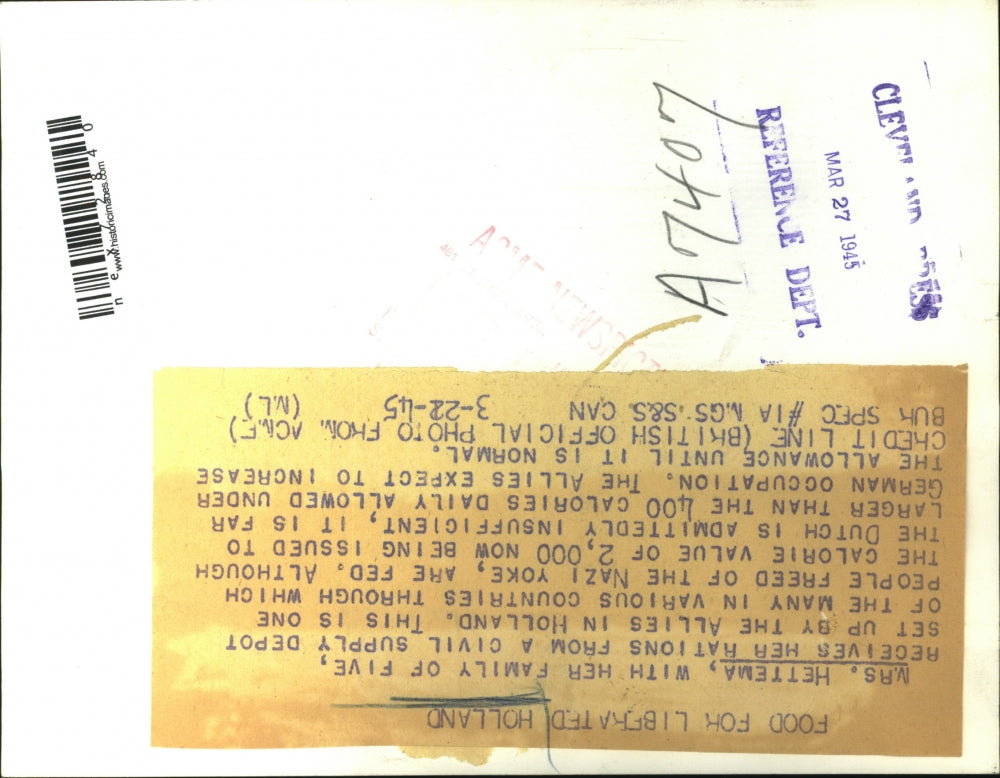 FOOD FOR LIBERATED HOLLAND
MRS. HETTEMA, WITH HER FAMILY OF FIVE,
RECEIVES HER RATIONS FROM A CIVIL SUPPLY DEPOT
SET UP BY THE ALLIES IN HOLLAND. THIS IS ONE
OF THE MANY IN VARIOUS COUNTRIES THROUGH WHICH
PEOPLE FREED OF THE NAZI YOKE, ARE FED. ALTHOUGH
THE CALORIE VALUE OF 2,000 NOW BEING ISSUED TO
THE DUTCH IS ADMITTEDLY INSUFFICIENT, IT IS FAR
LARGER THAN THE 400 CALORIES DAILY ALLOWED UNDER
GERMAN OCCUPATION. THE ALLIES EXPECT TO INCREASE
THE ALLOWANCE UNTIL IT IS NORMAL.
CREDIT LINE (BRITISH OFFICIAL PHOTO FROM ACME)
BUR SPEC #1A NGS S&S CAN 3-22-45 (ML)
CLEVELAND PRESS
MAR 27 1945
REFERENCE DEPT.
A7407
ACME NEWSPICT
www.historicimages.com